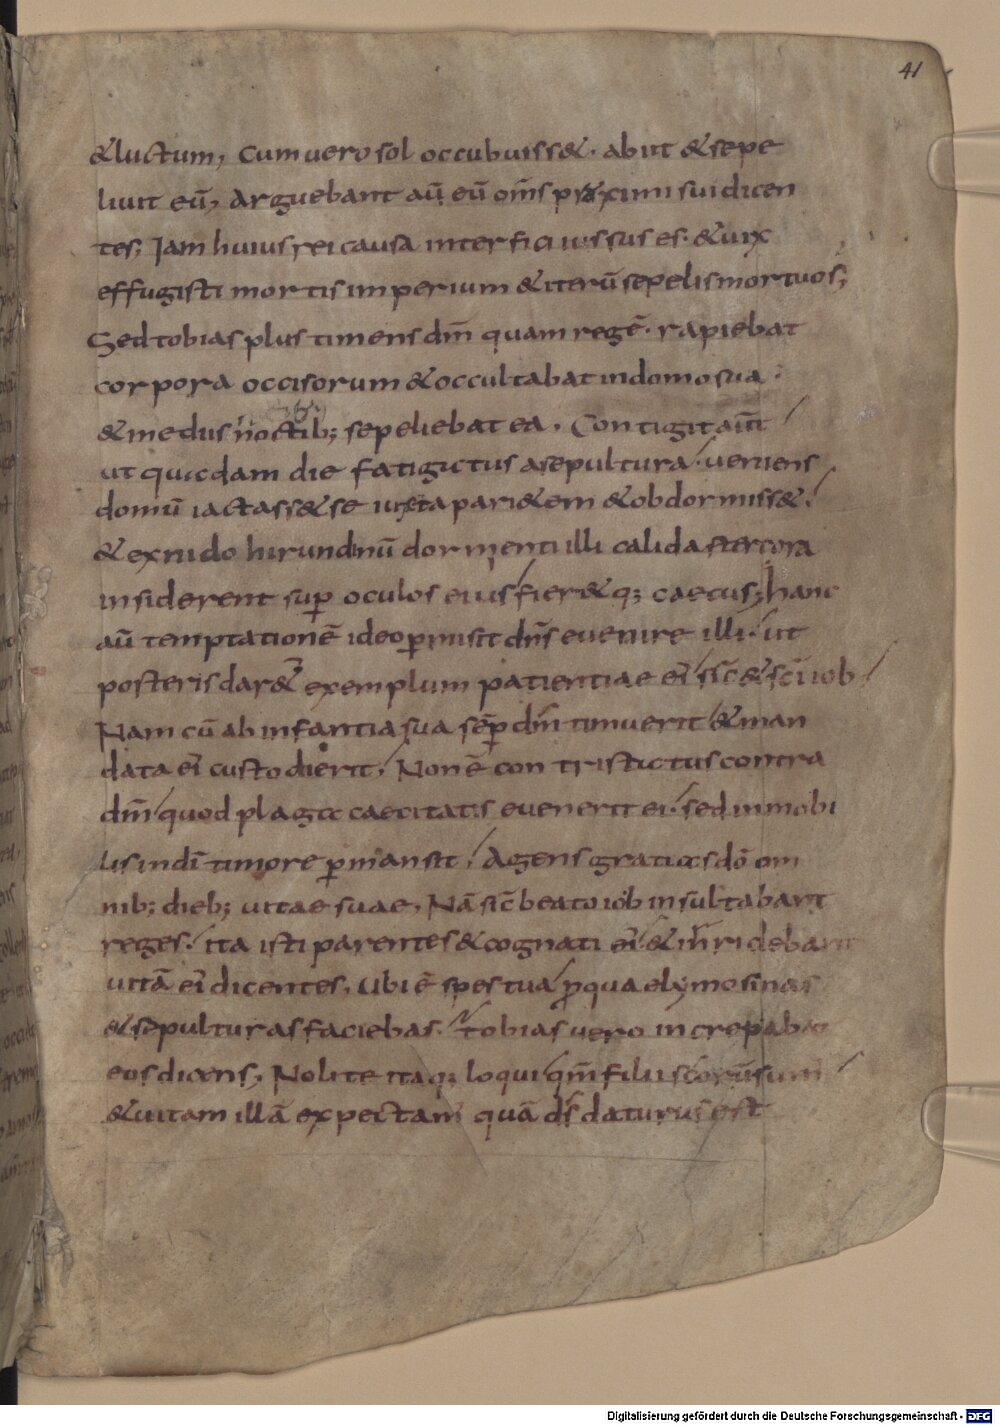 41
&luctum, Cum uero sol occubuiss&. abiit &sepe
liuit eū, Arguebant aū eū om̄s proximi sui dicen
tes, Jam huius rei causa interfici iussus es. &uix
effugisti mortis imperium &iterū sepelis mortuos;
Sed tobias plus timens dm̄ quam regē. rapiebat
corpora occisorum &occultabat in domo sua.
&mediis noctib; sepeliebat ea, Contigit aūt
ut quadam die fatigatus a sepultura. ueniens
domū iactass& se iuxta pari&em &obdormiss&.
&ex nido hirundinū dormienti illi calida stercora
insiderent sup̱ oculos eius fier&q; caecus, hanc
aū temptationē ideo p̱misit dn̄s euenire illi. ut
posteris dar& exemplum patientiae ei' sic̄ &sc̄i iob
Nam cū ab infantia sua sēp̱ dm̄ timuerit &man
data ei' custodierit, Non ē contristatus contra
dm̄ quod plaga caecitatis euenerit ei. sed inmobi
lis in dī timore p̱mansit, Agens gratias dō om
nib; dieb; uitae suae, Nā sic̄ beato iob insultabant
reges. ita isti parentes &cognati ei' &inridebant
uitā ei' dicentes, Ubi ē spes tua p̱ qua elymosinas
&sepulturas faciebas. tobias uero increpabat
eos dicens, Nolite itaq; loqui qm̄ filii sc̄orū sumus
&uitam illā expectam' quā ds̄ daturus est
Digitalisierung gefördert durch die Deutsche Forschungsgemeinschaft - DFG